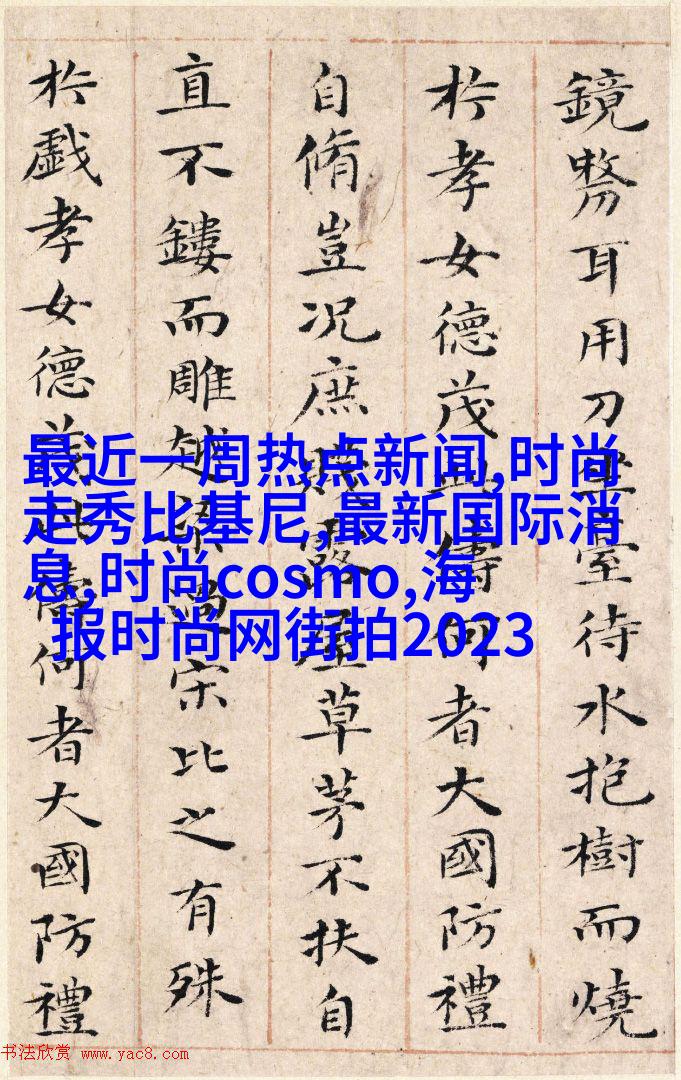 鏡剺耳用刀坐臺待水抱樹而燒
扵孝女德茂此儔何者大國防禮
自脩豈况庶賤露屋草茅不扶自
直不鏤而雕越梁過宋比之有殊
扵戲孝女德茂此儔何者大國防禮
最近一周热点新闻,时尚
走秀比基尼,最新国际消
息,时尚cosmo,海
报时尚网街拍2023
书法欣赏 www.yac8.com